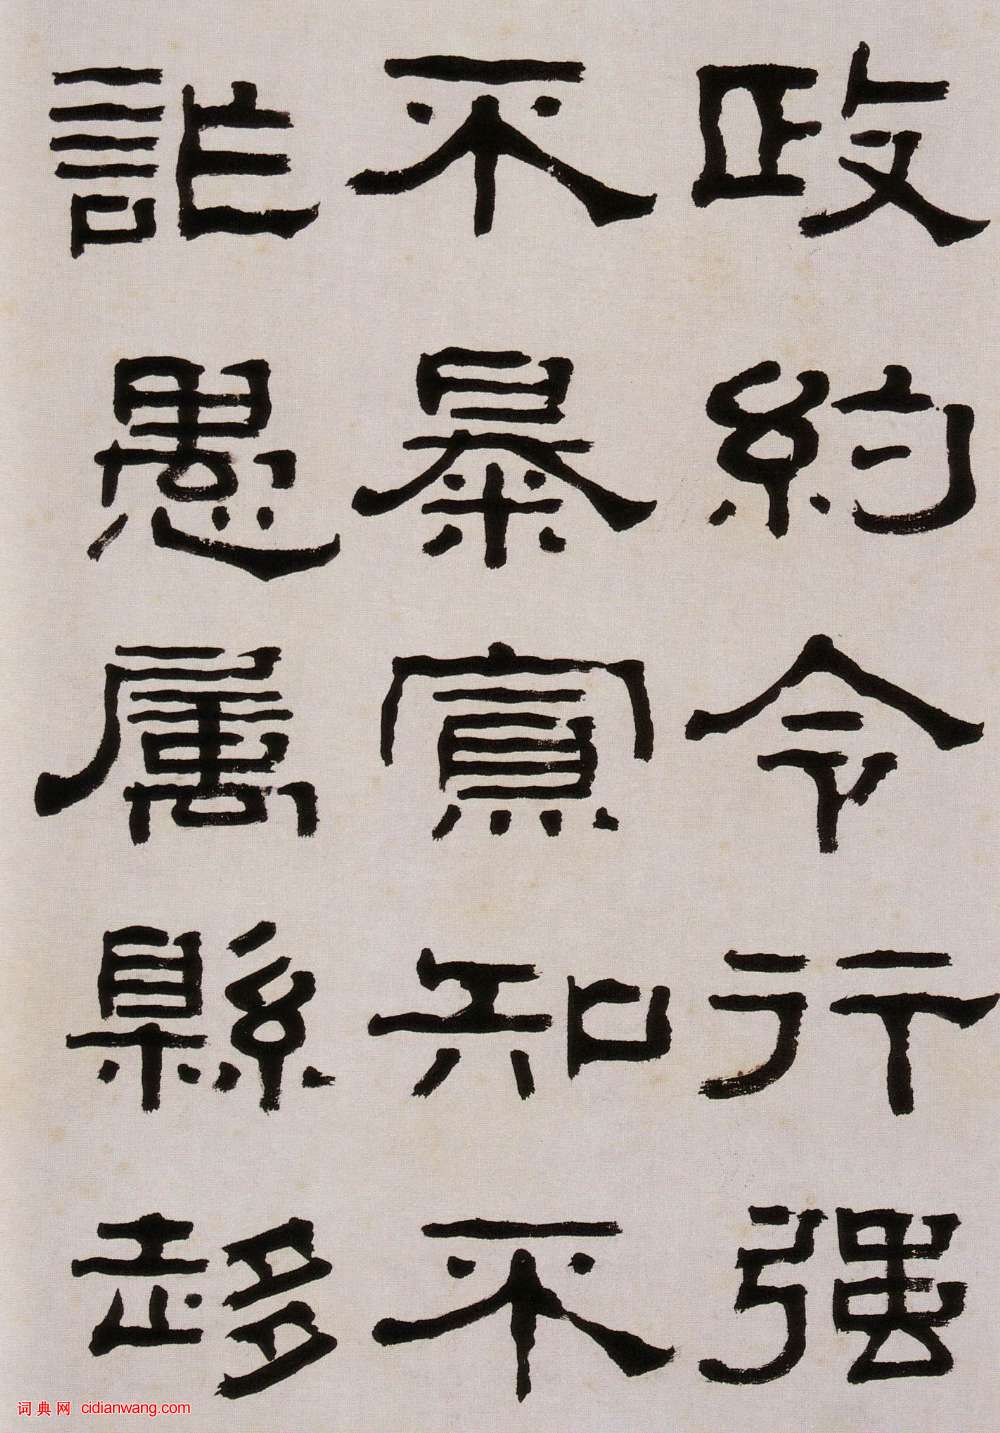 政約令行強
不暴寡知不
詐愚屬縣趍
词典网 cidianwang.com